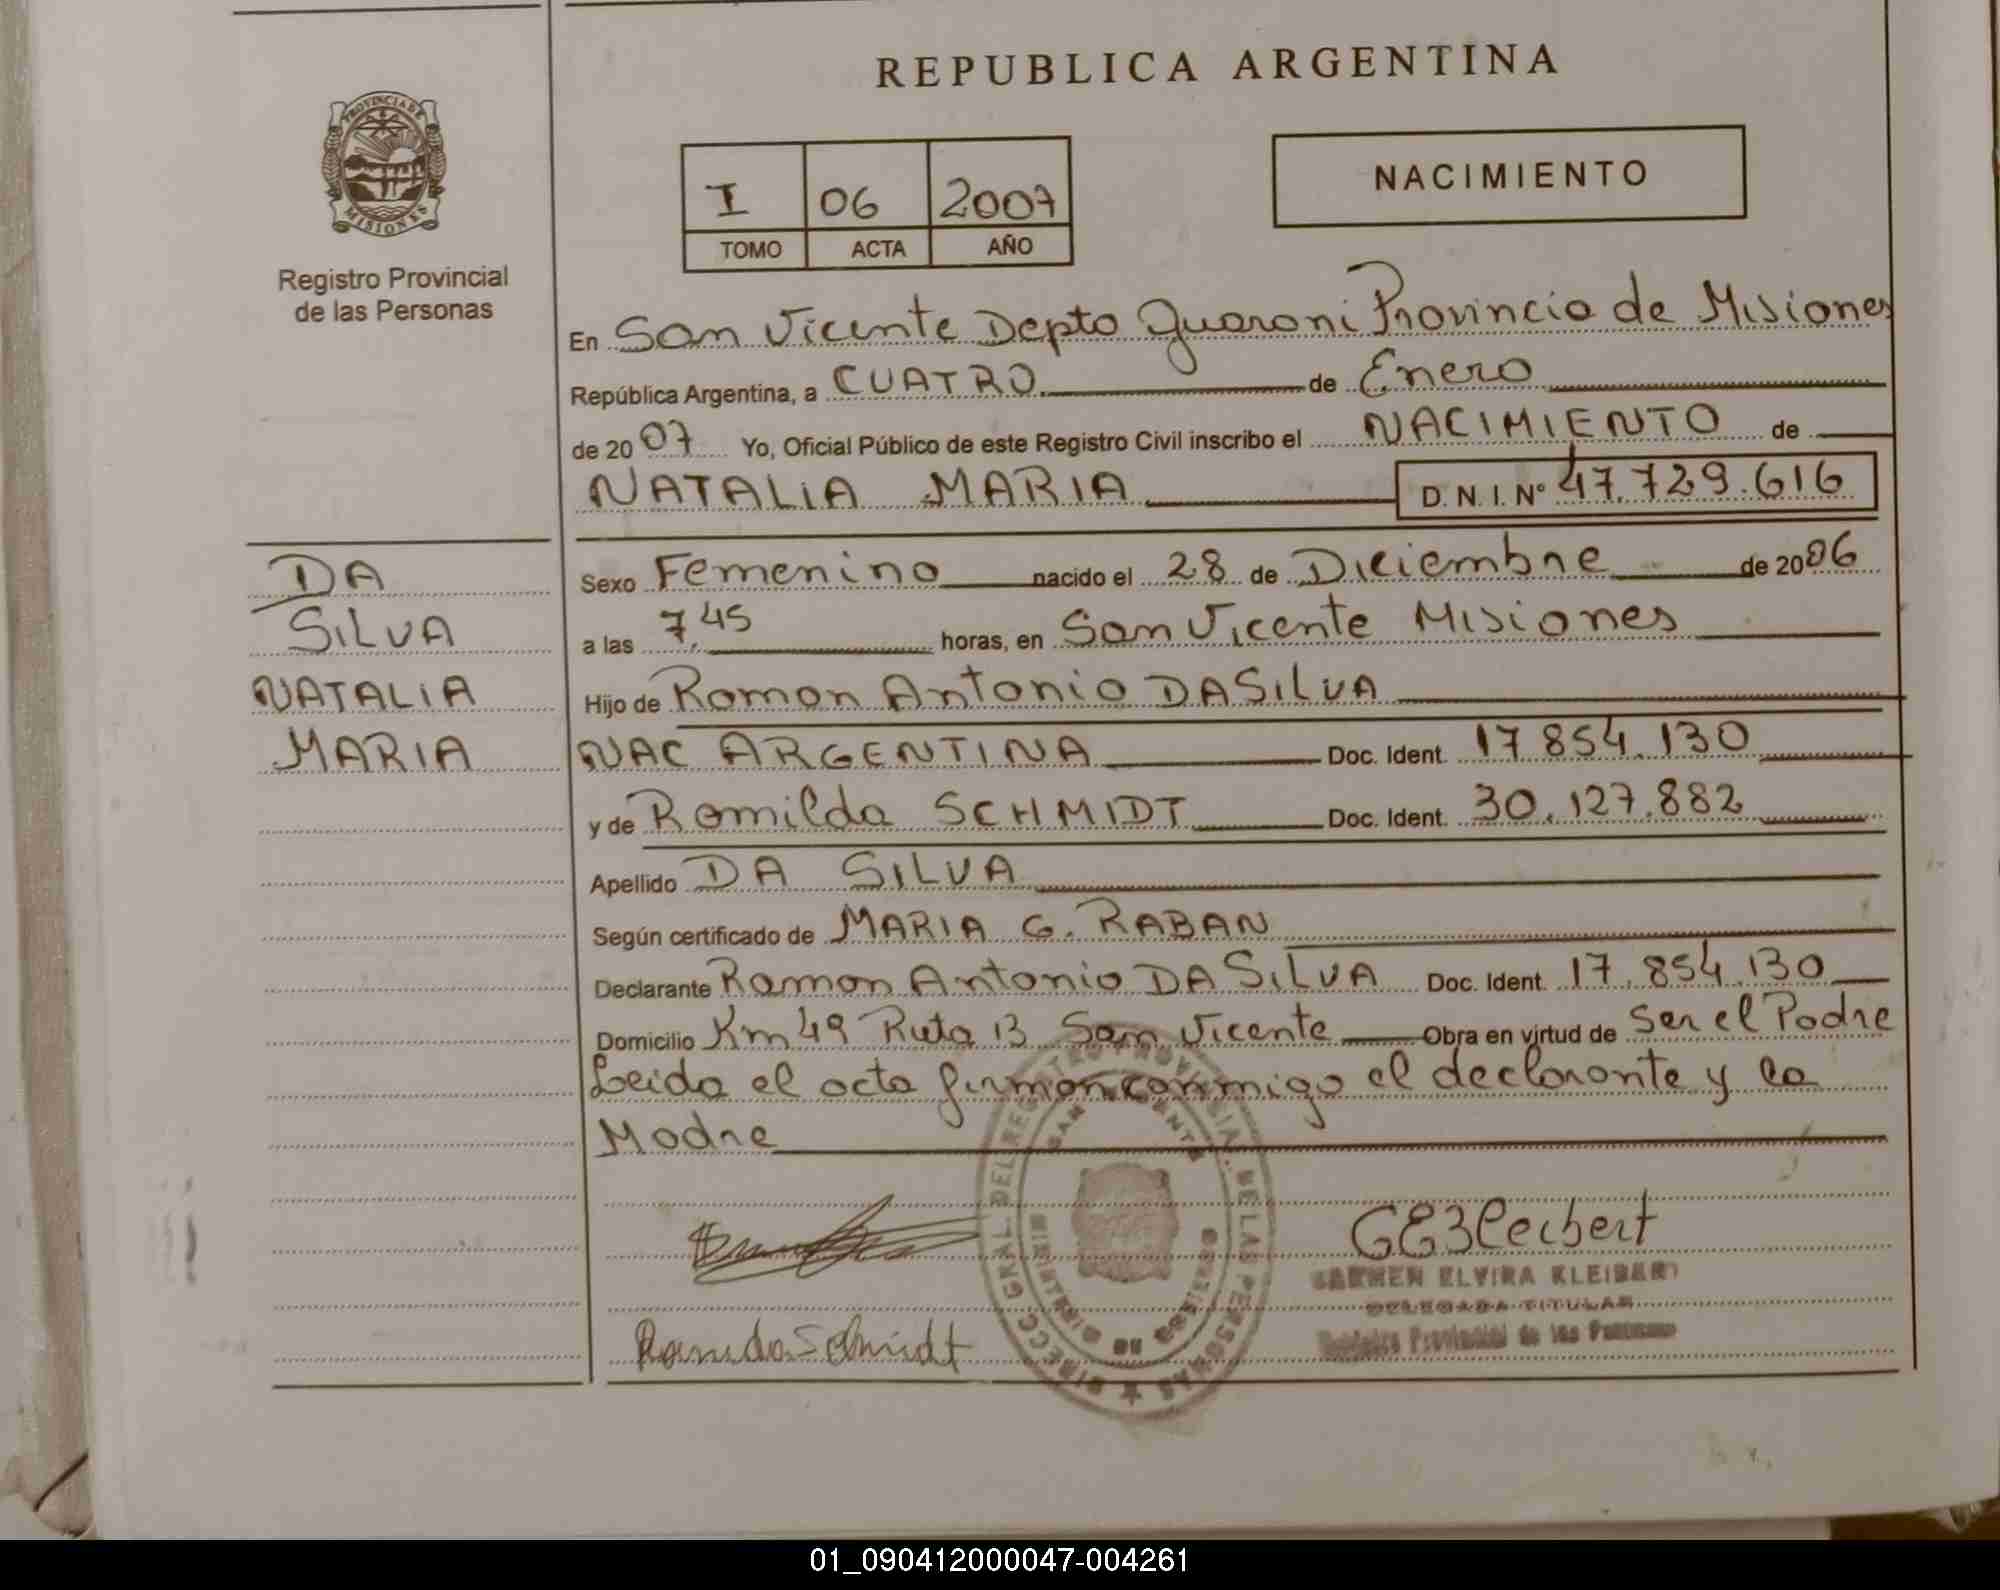 REPUBLICA ARGENTINA
PROVINCIA DE
MISIONES
Registro Provincial
de las Personas
I 06 2007
TOMO ACTA AÑO
NACIMIENTO
En San Vicente Depto Guarani Provincia de Misiones
República Argentina, a CUATRO de Enero
de 2007 Yo, Oficial Público de este Registro Civil inscribo el NACIMIENTO de
NATALIA MARIA D. N. I. Nº 47.729.616
DA
SILVA
NATALIA
MARIA
Sexo Femenino nacido el 28 de Diciembre de 2006
a las 7,45 horas, en San Vicente Misiones
Hijo de Ramon Antonio DA SILVA
NAC ARGENTINA Doc. Ident. 17.854.130
y de Romilda SCHMIDT Doc. Ident. 30.127.882
Apellido DA SILVA
Según certificado de MARIA G. RABAN
Declarante Ramon Antonio DA SILVA Doc. Ident. 17.854.130
Domicilio Km 49 Ruta 13 San Vicente Obra en virtud de Ser el Padre
Leida el acta firman conmigo el declarante y la
Madre
DIRECC GRAL. DEL REGISTRO PROVINCIAL DE LAS PERSONAS
SAN VICENTE
MISIONES
CARMEN ELVIRA KLEIBERT
DELEGADA TITULAR
Registro Provincial de las Personas
Romilda Schmidt
01_090412000047-004261